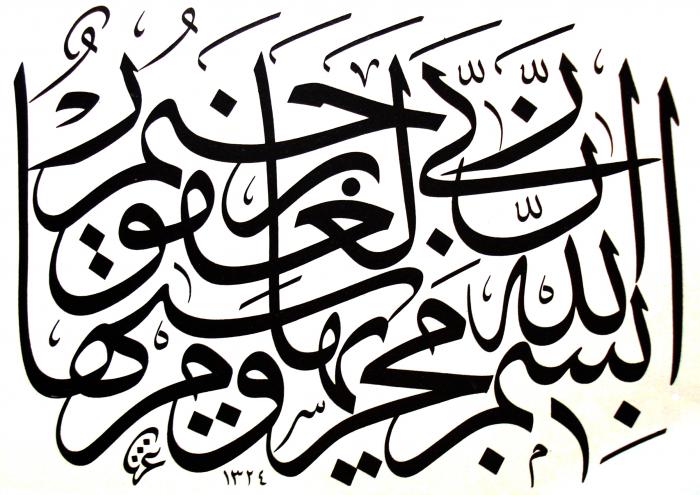 بسم الله مجريها ومرسيها
إن ربي لغفور رحيم
عزت
١٣٢٤